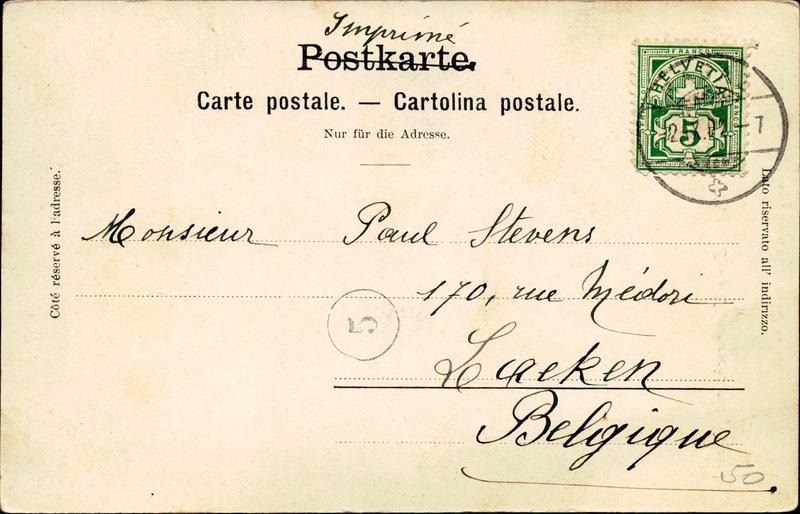 Imprimé
Postkarte.
Carte postale. — Cartolina postale.
Nur für die Adresse.
FRANCO
HELVETIA
5
Côté réservé à l'adresse.
Lato riservato all' indirizzo.
Monsieur Paul Stevens
170, rue Médori
5
Laeken
Belgique
50